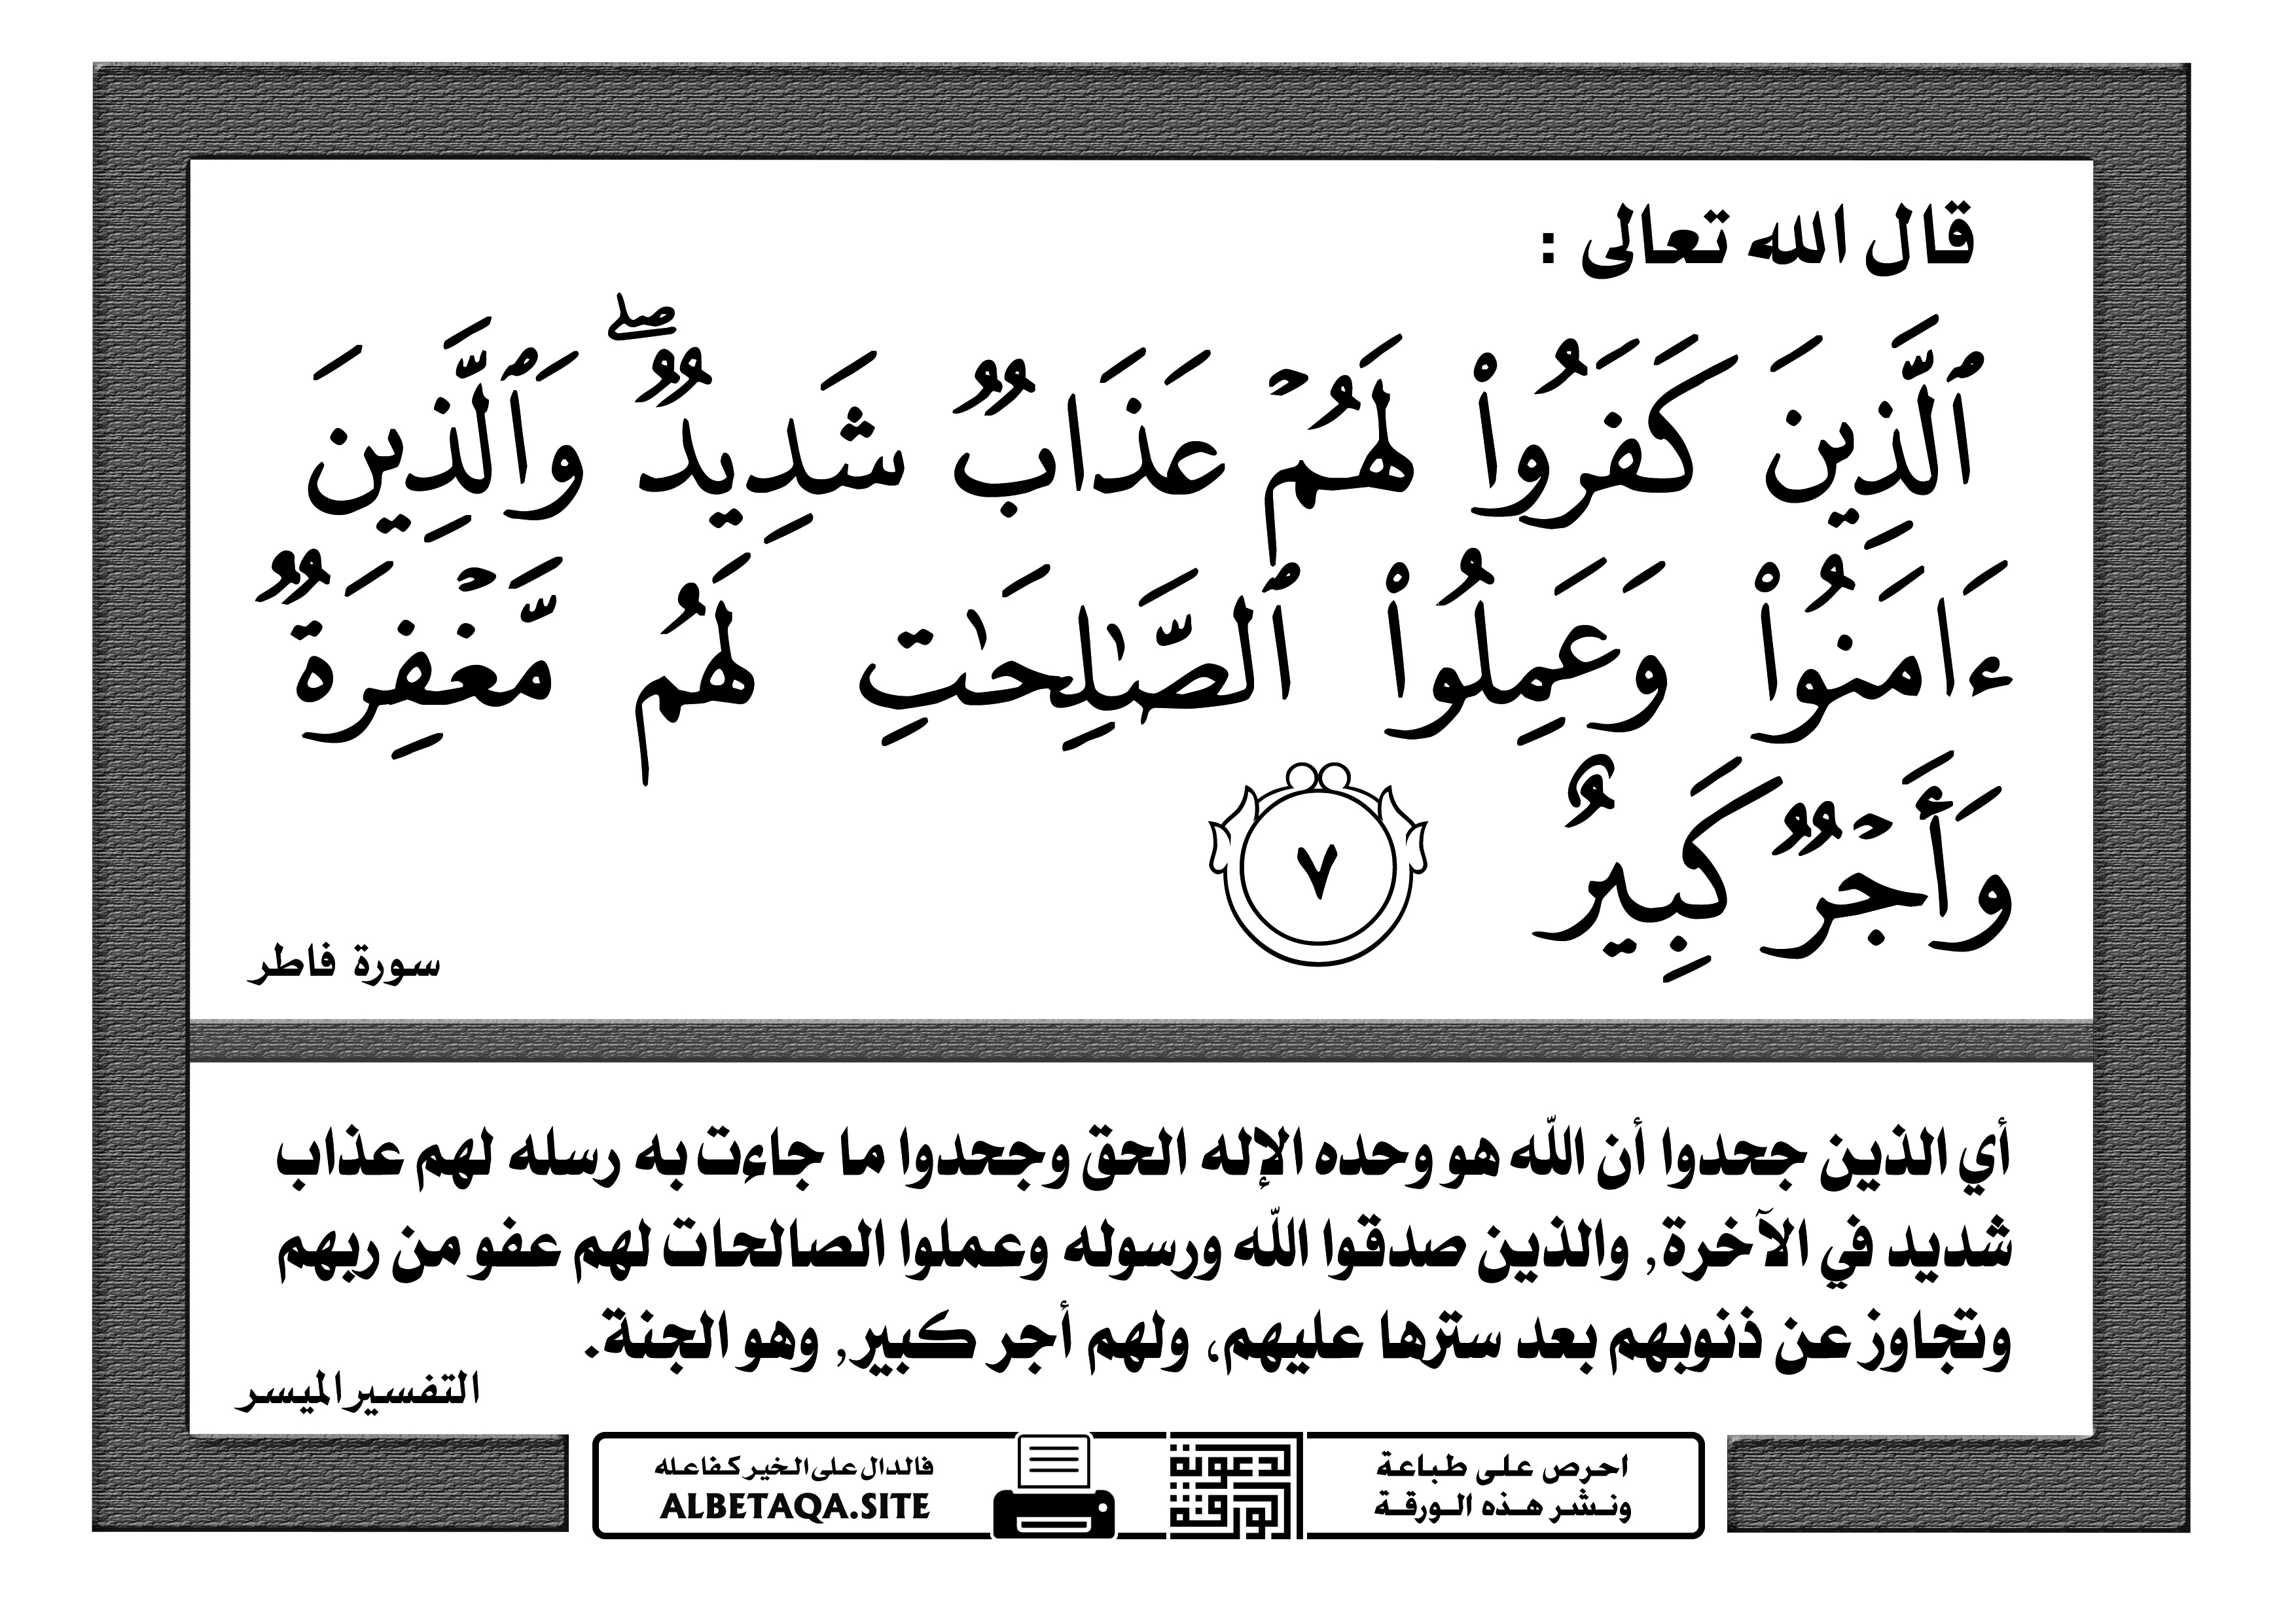 قال الله تعالى :
ٱلَّذِينَ كَفَرُوا۟ لَهُمْ عَذَابٌ شَدِيدٌ ۖ وَٱلَّذِينَ
ءَامَنُوا۟ وَعَمِلُوا۟ ٱلصَّـٰلِحَـٰتِ لَهُم مَّغْفِرَةٌ
وَأَجْرٌ كَبِيرٌ ٧
سورة فاطر
أي الذين جحدوا أن اللّه هو وحده الإله الحق وجحدوا ما جاءت به رسله لهم عذاب
شديد في الآخرة, والذين صدقوا اللّه ورسوله وعملوا الصالحات لهم عفو من ربهم
وتجاوز عن ذنوبهم بعد سترها عليهم، ولهم أجر كبير, وهو الجنة.
التفسير الميسر
احرص على طباعة
ونشر هذه الورقة
الورقة
الدعوية
فالدال على الخير كفاعله
ALBETAQA.SITE